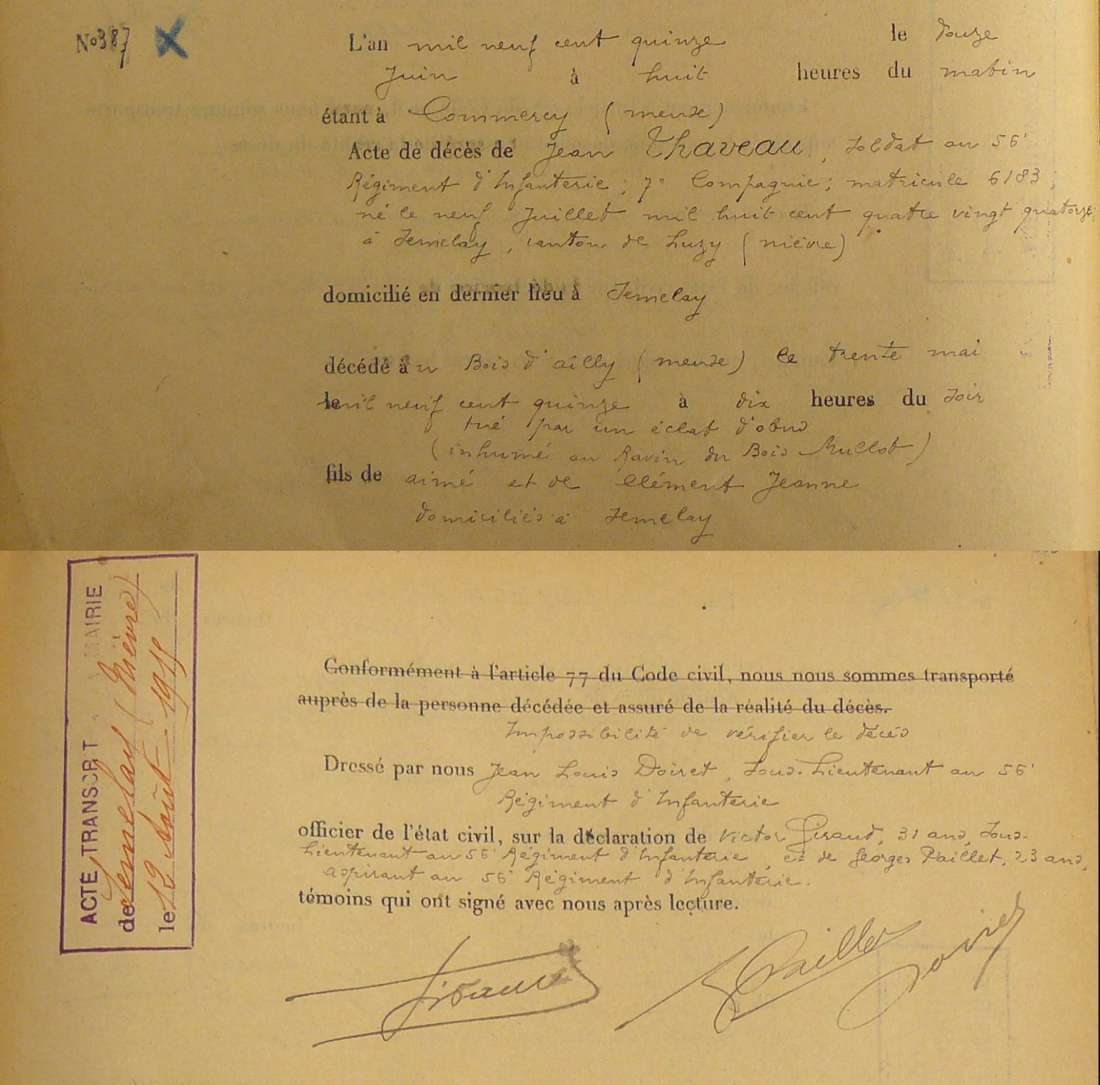 No 387
L'an mil neuf cent quinze le douze
Juin à huit heures du matin
étant à Commercy (meuse)
Acte de décès de Jean Thaveau, soldat au 56e
Régiment d'Infanterie; 7e Compagnie; matricule 6183;
né le neuf Juillet mil huit cent quatre vingt quatorze
à Semelay, canton de Luzy (nièvre)
domicilié en dernier lieu à Semelay
décédé au Bois d'ailly (meuse) le trente mai
mil neuf cent quinze à dix heures du soir
tué par un éclat d'obus
(inhumé au Ravin du Bois Mullot)
fils de aimé et de Clément Jeanne
domiciliés à Semelay
ACTE TRANSCRIT MAIRIE
de Semelay (Nièvre)
le 12 Août 1915
Conformément à l'article 77 du Code civil, nous nous sommes transporté
auprès de la personne décédée et assuré de la réalité du décès.
Impossibilité de vérifier le décès
Dressé par nous Jean Louis Doiret, Sous-Lieutenant au 56e
Régiment d'Infanterie
officier de l'état civil, sur la déclaration de Victor Giraud, 31 ans, Sous-
Lieutenant au 56e Régiment d'Infanterie, et de Georges Paillet, 23 ans,
aspirant au 56e Régiment d'Infanterie.
témoins qui ont signé avec nous après lecture.
Giraud GPaillet Doiret